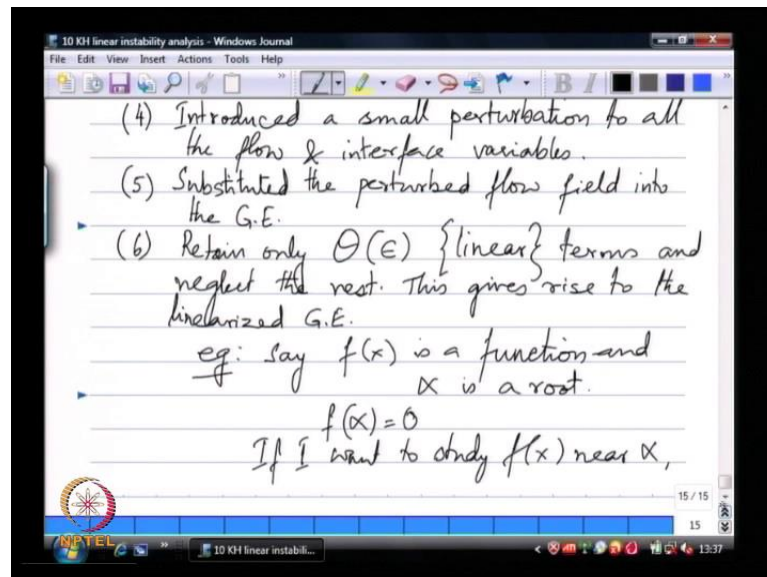 10 KH linear instability analysis - Windows Journal
File Edit View Insert Actions Tools Help
(4) Introduced a small perturbation to all
the flow & interface variables.
(5) Substituted the perturbed flow field into
the G.E.
(6) Retain only O(ϵ) {linear} terms and
neglect the rest. This gives rise to the
linearized G.E.
eg: Say f(x) is a function and
α is a root.
f(α) = 0
If I want to study f(x) near α,
15 / 15
15
NPTEL
10 KH linear instabili...
13:37